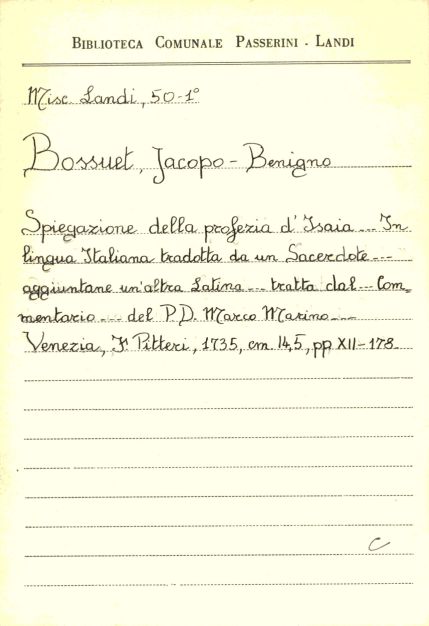 BIBLIOTECA COMUNALE PASSERINI - LANDI
Misc. Landi, 50-1°
Bossuet, Jacopo-Benigno
Spiegazione della profezia d'Isaia... In
lingua Italiana tradotta da un Sacerdote...
aggiuntane un'altra Latina... tratta dal... Com-
mentario... del P.D. Marco Marino...
Venezia, F. Pitteri, 1735, cm. 14,5, pp. XII-178.
C